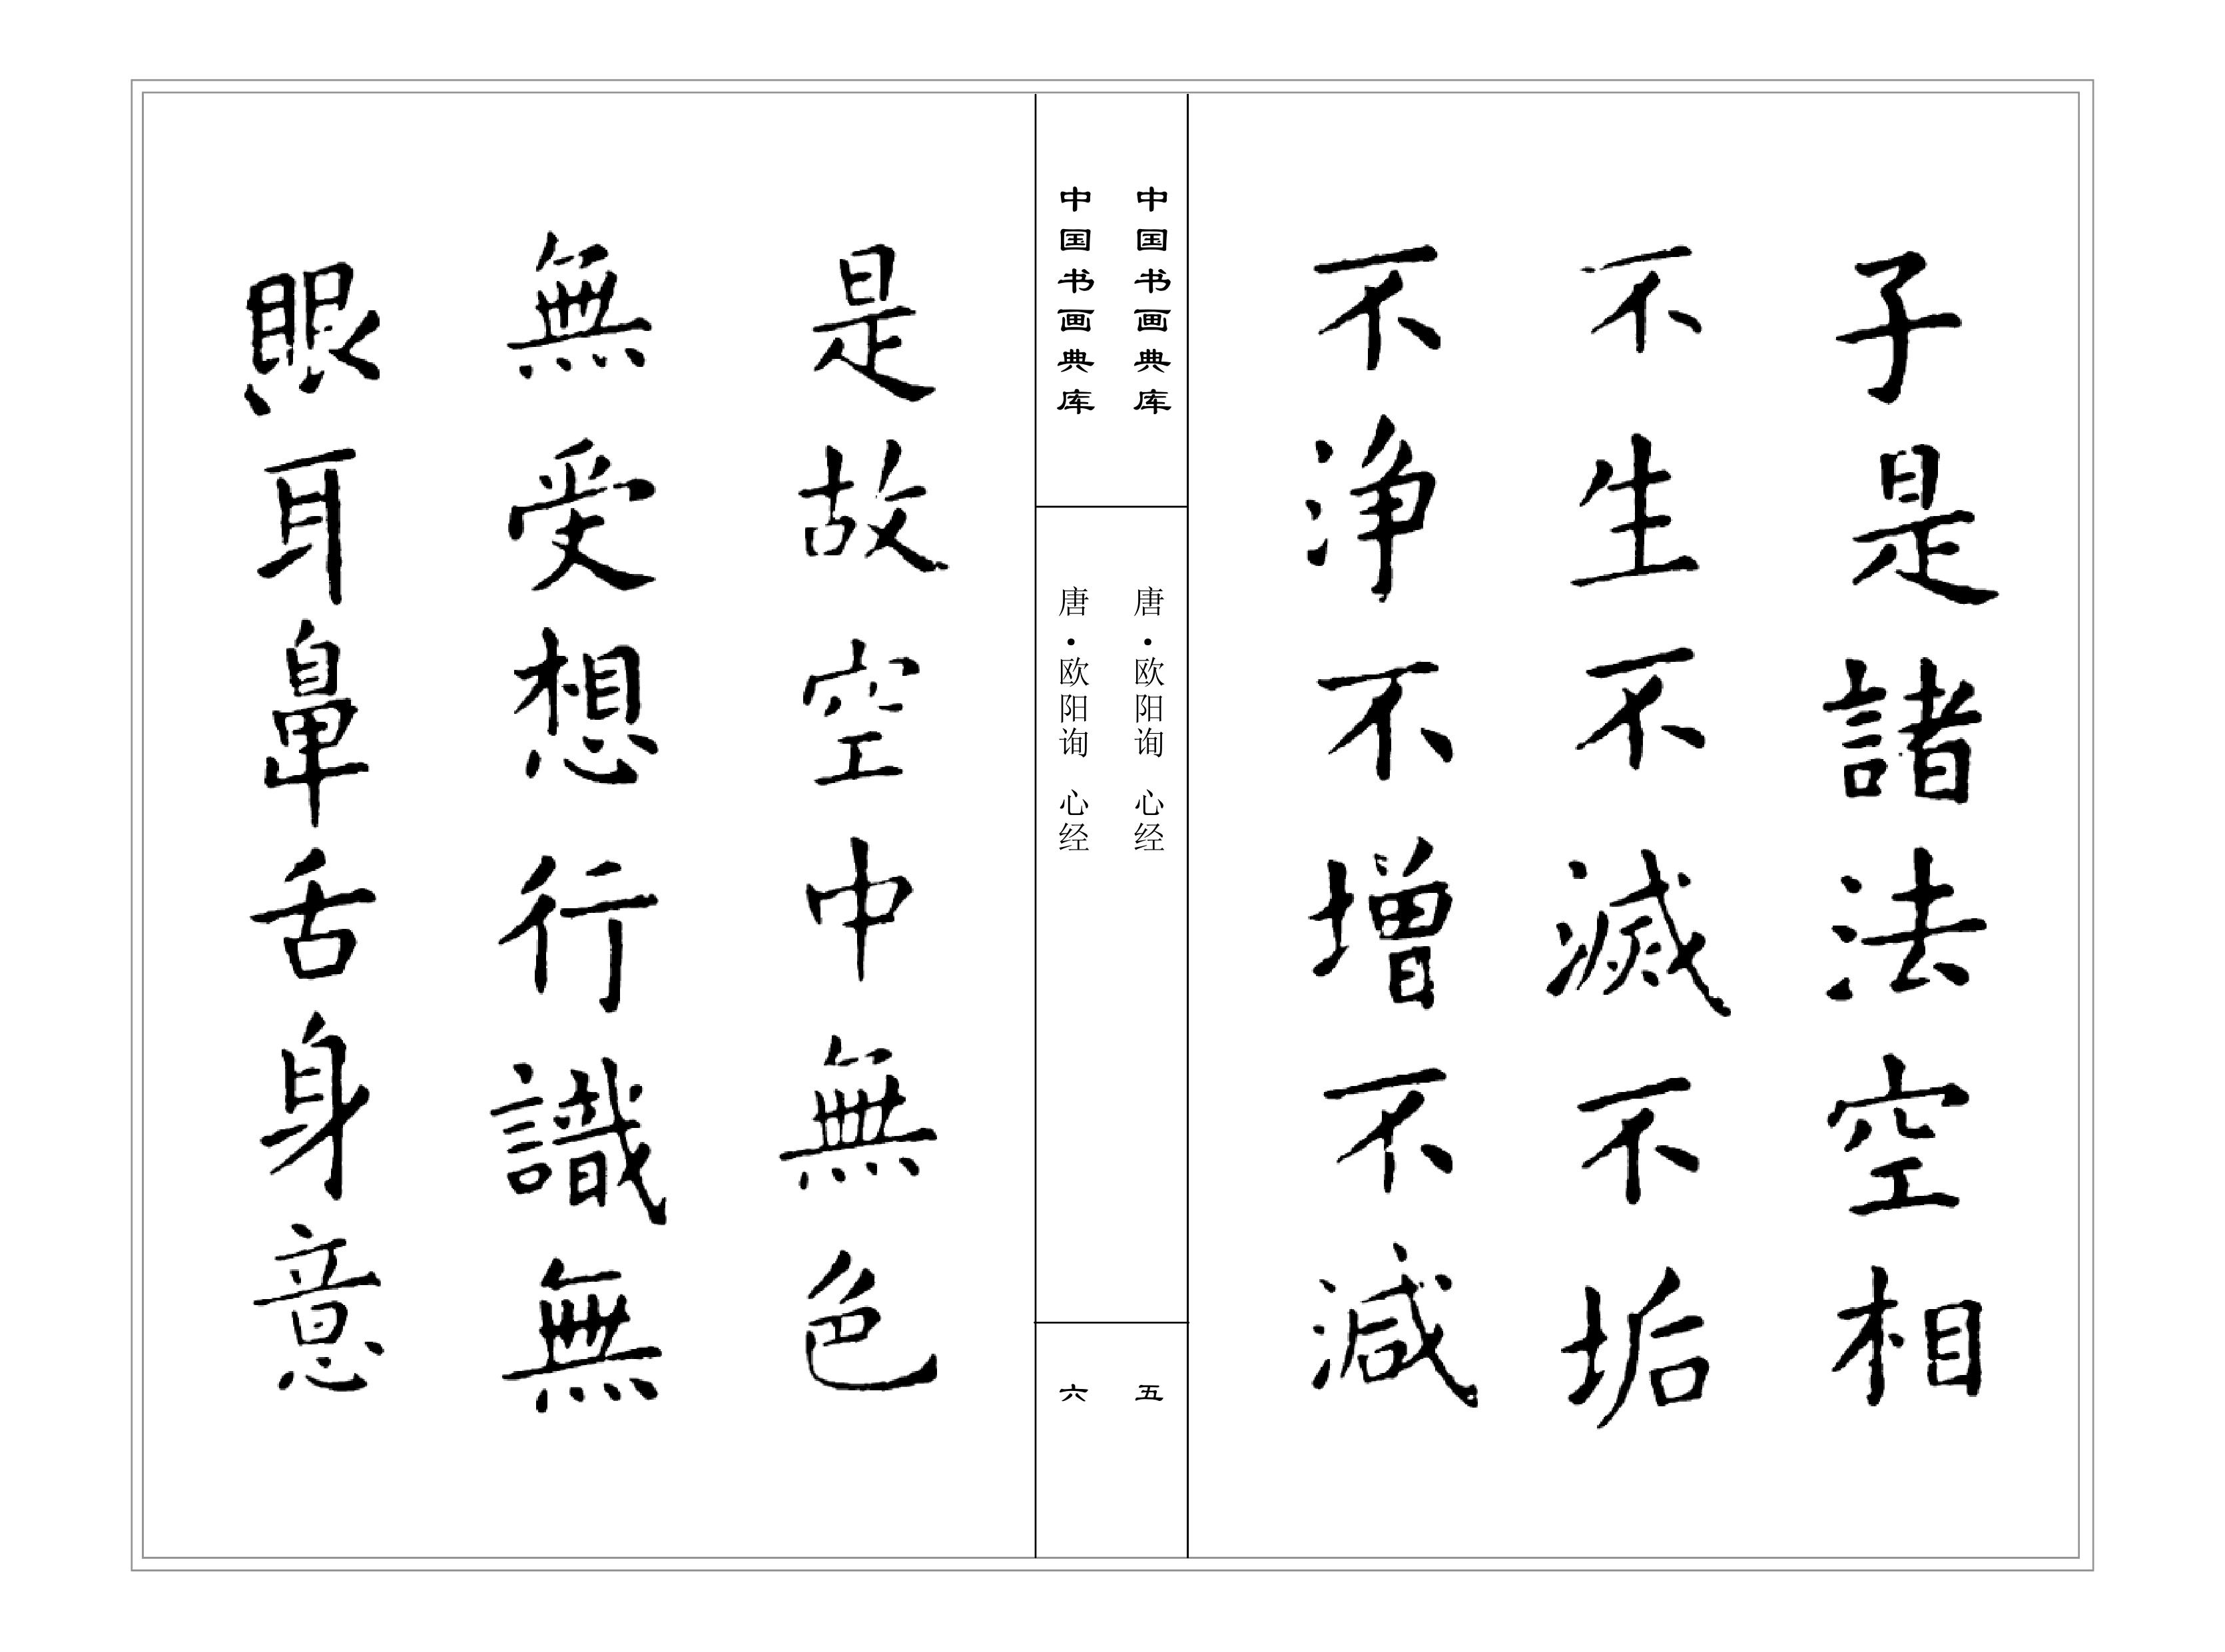 子是諸法空相
不生不滅不垢
不淨不增不減
中国书画典库
唐·欧阳询 心经
五
中国书画典库
唐·欧阳询 心经
六
是故空中無色
無受想行識無
眼耳鼻舌身意